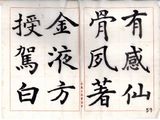 有感仙
骨夙著
金液方
授駕白
57